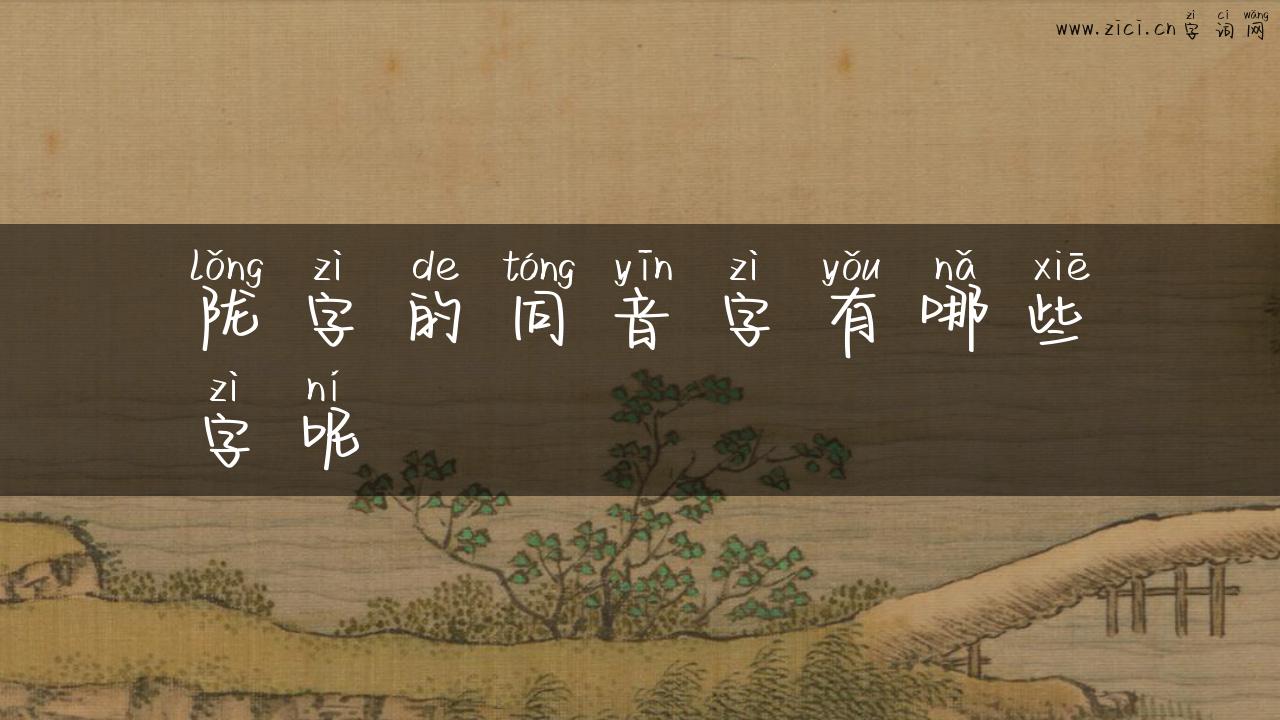 zì cí wǎng
www.zici.cn 字词网
lǒng zì de tóng yīn zì yǒu nǎ xiē
陇字的同音字有哪些
zì ní
字呢